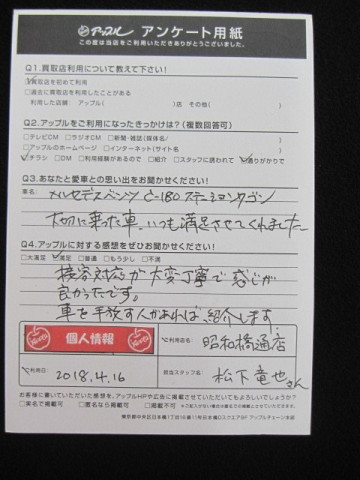 アップル アンケート用紙
この度は当店をご利用いただきありがとうございました。
Q1.買取店利用について教えて下さい!
□買取店を初めて利用
□過去に買取店を利用したことがある
利用した店舗: アップル( )店 その他( )
Q2.アップルをご利用になったきっかけは?(複数回答可)
□テレビCM □ラジオCM □新聞・雑誌(媒体名/ )
□アップルのホームページ □インターネット(サイト名 )
□チラシ □DM □利用経験があるので □紹介 □スタッフに誘われて □通りがかりで
Q3.あなたと愛車との思い出をお聞かせください!
車名: メルセデスベンツ C-180 ステーションワゴン
大切に乗った車、いつも満足させてくれました
Q4.アップルに対する感想をぜひお聞かせください!
□大満足 □満足 □普通 □もう少し □不満
接客対応が大変丁寧で感じが
良かったです。
車を手放す人があれば紹介します
個人情報
●利用店名: 昭和橋通店
●利用日: 2018.4.16
担当スタッフ名: 松下竜也さん
お客様に書いていただいた感想を、アップルHPや広告に掲載させていただいてもよろしいでしょうか?
□実名で掲載可 □匿名なら掲載可 □掲載不可